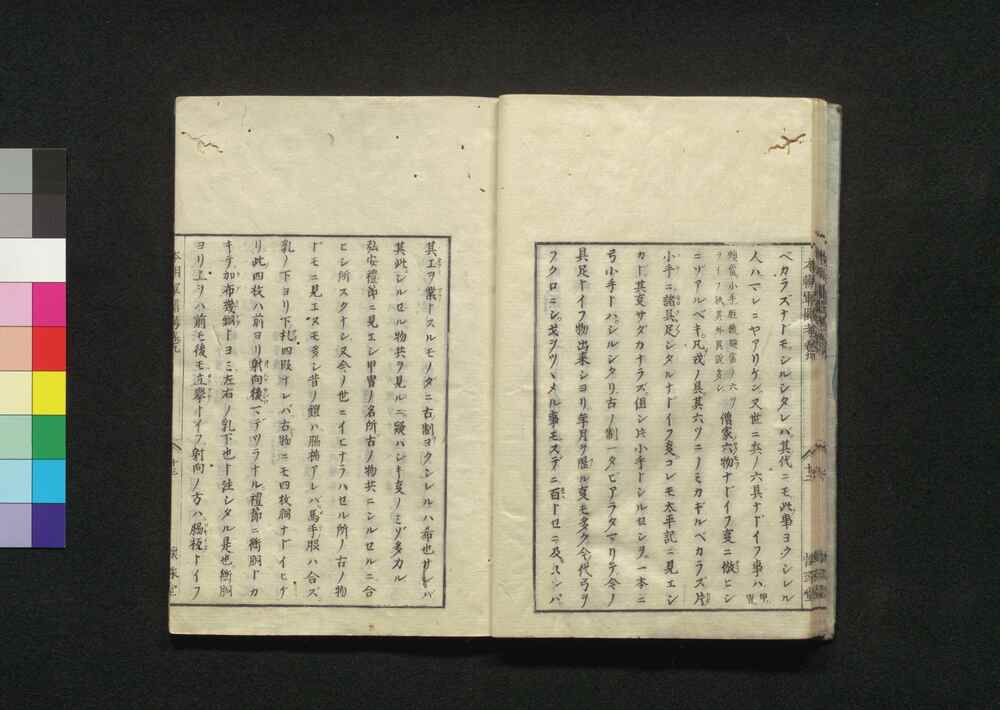 ベカラズナドモシルシタレバ其代ニモ此事ヨクシレル
人ハマレニヤアリケン又世ニ兵ノ六具ナドイフ事ハ甲冑
頰當小手脛楯脇當ノ六ツ
ヲイフ 其外異説多シ
僧家六物ナドイフ事ニ倣ヒシ
ニゾアルベキ凡戎ノ具其六ツニノミカギルベカラズ片
小手ニ諸具足シタルナドイフ事コレモ太平記ニ見エシ
カド其事サダカナラズ但シ片小手トシルセシヲ一本ニ
弓小手トハシルシタリ古ノ制一タビアラタマリテ今ノ
具足トイフ物出來シヨリ年月ヲ歴ル事モ多ク今代弓ヲ
フクロニシ戈ヲツヽメル事モスデニ百トセニ及ベレバ
其工ヲ業トスルモノダニ古制ヨクシレルハ希也サレバ
其此シルセル物共ヲ見ルニ疑ハシキ事ノミゾ多カル
弘安禮節ニ見エシ甲冑ノ名所古ノ物共ニシルセルニ合
ヒシ所スクナシ又今ノ世ニイヒナラハセル所ノ古ノ物
ドモニ見エヌモ多シ昔ノ鎧ハ脇楯アレバ馬手脵ハ合ズ
乳ノ下ヨリ下札四段オレバ古物ニモ四枚胴ナドイヒケ
リ此四枚ハ前ヨリ射向後マデツラナル禮節ニ衡胴トカ
キテ加布幾胴トヨミ左右ノ乳下也ト註シタル是也衡胴
ヨリ上ヲハ前モ後モ立擧トイフ射向ノ方ハ脇板トイフ